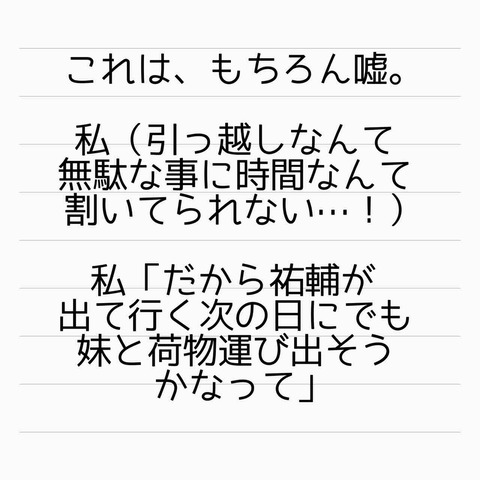 これは、もちろん嘘。
私（引っ越しなんて
無駄な事に時間なんて
割いてられない…！）
私「だから祐輔が
出て行く次の日にでも
妹と荷物運び出そう
かなって」